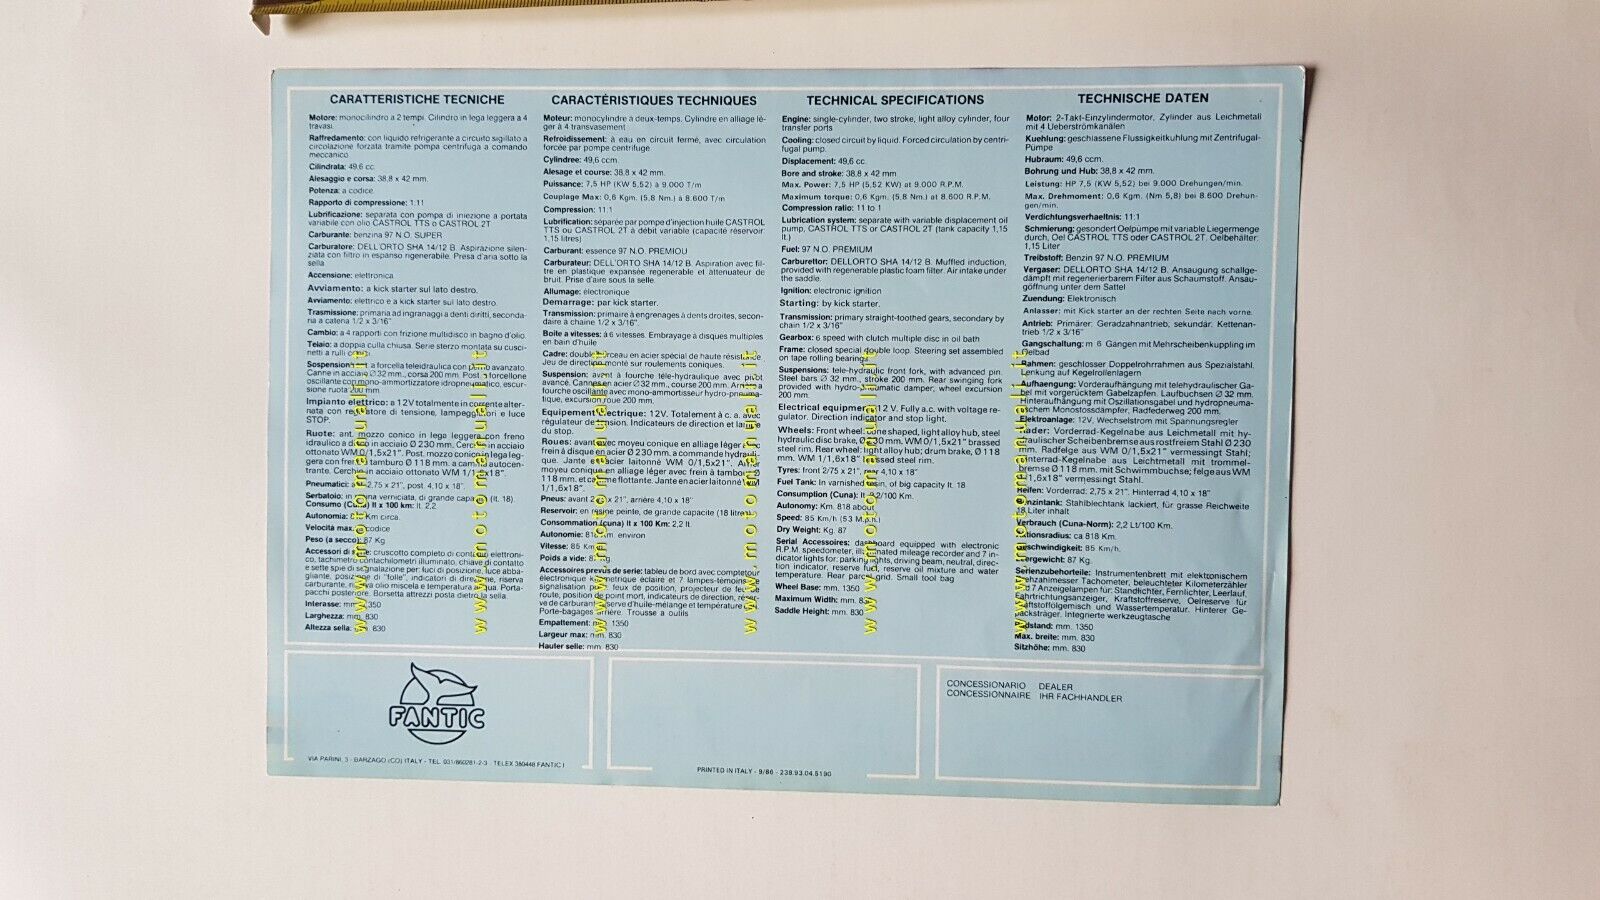 CARATTERISTICHE TECNICHE
Motore: monocilindro a 2 tempi. Cilindro in lega leggera a 4
travasi.
Raffredamento: con liquido refrigerante a circuito sigillato a
circolazione forzata tramite pompa centrifuga a comando
meccanico
Cilindrata: 49,6 cc.
Alesaggio e corsa: 38,8 x 42 mm.
Potenza: a codice.
Rapporto di compressione: 1:11
Lubrificazione: separata con pompa di iniezione a portata
variabile con olio CASTROL TTS o CASTROL 2T
Carburante: benzina 97 N.O. SUPER
Carburatore: DELL'ORTO SHA 14/12 B. Aspirazione silen-
ziata con filtro in espanso rigenerabile. Presa d'aria sotto la
sella
Accensione: elettronica
Avviamento: a kick starter sul lato destro.
Avviamento: elettrico e a kick starter sul lato destro.
Trasmissione: primaria ad ingranaggi a denti diritti, seconda-
ria a catena 1/2 x 3/16"
Cambio: a 4 rapporti con frizione multidisco in bagno d'olio.
Telaio: a doppia culla chiusa. Serie sterzo montata su cusci-
netti a rulli
Suspension a forcella teleidraulica con avanzato.
Canne in acciaio Ø 32 mm., corsa 200 mm. Post. forcellone
oscillante con mono-ammortizzatore idropneumatico, escur-
sione ruota 200 mm.
Impianto elettrico: a 12V totalmente in corrente alter-
nata con regolatore di tensione, lampeggiatori e luce
STOP.
Ruote: ant. mozzo conico in lega leggera con freno
idraulico a disco in acciaio Ø 230 mm. Cerchio in acciaio
ottonato WM 0/1,5x21". Post. mozzo conico in lega leg-
gera con freno tamburo Ø 118 mm. a camma autocen-
trante. Cerchio in acciaio ottonato WM 1/1,6x18".
Pneumatici: 2,75 x 21", post. 4,10 x 18".
Serbatoio: in verniciata, di grande capacità (lt. 18).
Consumo (Cuna) lt x 100 km: lt. 2,2
Autonomia: Km circa.
Velocità max. codice
Peso (a secco): 87 Kg
Accessori di serie: cruscotto completo di contagiri elettroni-
co, tachimetro contachilometri illuminato, chiave di contatto
e sette spie di segnalazione per: luci di posizione, luce abba-
gliante, posizione di "folle", indicatori di direzione, riserva
carburante, riserva olio miscela e temperatura acqua. Porta-
pacchi posteriore. Borsetta attrezzi posta dietro la sella.
Interasse: mm. 1350
Larghezza: mm. 830
Altezza sella: mm. 830
CARACTÉRISTIQUES TECHNIQUES
Moteur: monocylindre à deux-temps. Cylindre en alliage lé-
ger à 4 transvasement
Refroidissement: à eau en circuit fermé, avec circulation
forcée par pompe centrifuge
Cylindree: 49,6 ccm.
Alesage et course: 38,8 x 42 mm.
Puissance: 7,5 HP (KW 5,52) à 9.000 T/m
Couplage Max: 0,6 Kgm. (5,8 Nm.) à 8.600 T/m
Compression: 11:1
Lubrification: séparée par pompe d'injection huile CASTROL
TTS ou CASTROL 2T à débit variable (capacité réservoir
1,15 litres)
Carburant: essence 97 N.O. PREMIOU
Carburateur: DELL'ORTO SHA 14/12 B. Aspiration avec fil-
tre en plastique expansée regenerable et attenuateur de
bruit. Prise d'aire sous la selle.
Allumage: électronique
Demarrage: par kick starter.
Transmission: primaire à engrenages à dents droites, secon-
daire à chaine 1/2 x 3/16".
Boite a vitesses: à 6 vitesses. Embrayage à disques multiples
en bain d'huile
Cadre: double berceau en acier spécial de haute résistance.
Jeu de direction monté sur roulements coniques.
Suspension: avant à fourche téle-hydraulique avec pivot
avancé. Cannes en acier Ø 32 mm., course 200 mm. Arrière à
fourche oscillante avec mono-ammortisseur hydro-pneuma-
tique, excursion roue 200 mm.
Equipement électrique: 12V. Totalement à c. a. avec
régulateur de tension. Indicateurs de direction et lampe
du stop.
Roues: avant avec moyeu conique en alliage léger avec
frein à disque en acier Ø 230 mm. a commande hydrauli-
que. Jante en acier laitonné WM 0/1,5x21". Arrière
moyeu conique en alliage léger avec frein à tambour Ø
118 mm. et came flottante. Jante en acier laitonné WM
1/1,6x18".
Pneus: avant 2,75 x 21", arriére 4,10 x 18"
Reservoir: en résine peinte, de grande capacité (18 litres)
Consommation (cuna) lt x 100 Km: 2,2 lt.
Autonomie: 818 Km. environ
Vitesse: 85 Km/h
Poids a vide: 87 Kg
Accessoires prevus de serie: tableau de bord avec compteur
électronique kilométrique éclaire et 7 lampes-témoins de
signalisation pour feux de position, projecteur de feu de
route, position de point mort, indicateurs de direction, réser-
ve de carburant, réserve d'huile-mélange et température
Porte-bagages arrière. Trousse a outils
Empattement: mm. 1350
Largeur max: mm. 830
Hauter selle: mm. 830
TECHNICAL SPECIFICATIONS
Engine: single-cylinder, two stroke, light alloy cylinder, four
transfer ports
Cooling: closed circuit by liquid. Forced circulation by centri-
fugal pump.
Displacement: 49,6 cc.
Bore and stroke: 38,8 x 42 mm
Max. Power: 7,5 HP (5,52 KW) at 9.000 R.P.M.
Maximum torque: 0,6 Kgm. (5,8 Nm.) at 8.600 R.P.M.
Compression ratio: 11 to 1
Lubrication system: separate with variable displacement oil
pump, CASTROL TTS or CASTROL 2T (tank capacity 1,15
lt.)
Fuel: 97 N.O. PREMIUM
Carburettor: DELLORTO SHA 14/12 B. Muffled induction,
provided with regenerable plastic foam filter. Air intake under
the saddle.
Ignition: electronic ignition
Starting: by kick starter.
Transmission: primary straight-toothed gears, secondary by
chain 1/2 x 3/16"
Gearbox: 6 speed with clutch multiple disc in oil bath
Frame: closed special double loop. Steering set assembled
on tape rolling bearings
Suspensions: tele-hydraulic front fork, with advanced pin.
Steel bars Ø 32 mm., stroke 200 mm. Rear swinging fork
provided with hydro-pneumatic damper, wheel excursion
200 mm.
Electrical equipment: 12 V. Fully a.c. with voltage re-
gulator. Direction indicator and stop light.
Wheels: Front wheel: cone shaped, light alloy hub, steel
hydraulic disc brake, Ø 230 mm. WM 0/1,5x21" brassed
steel rim. Rear wheel: light alloy hub; drum brake, Ø 118
mm. WM 1/1,6x18" brassed steel rim.
Tyres: front 2/75 x 21", rear 4,10 x 18"
Fuel Tank: In varnished resin, of big capacity lt. 18
Consumption (Cuna): lt. 2,2/100 Km.
Autonomy: Km. 818 about
Speed: 85 Km/h (53 M.p.h.)
Dry Weight: Kg. 87
Serial Accessoires: dashboard equipped with electronic
R.P.M. speedometer, illuminated mileage recorder and 7 in-
dicator lights for: parking lights, driving beam, neutral, direc-
tion indicator, reserve fuel, reserve oil mixture and water
temperature. Rear parcel grid. Small tool bag
Wheel Base: mm. 1350
Maximum Width: mm. 830
Saddle Height: mm. 830
TECHNISCHE DATEN
Motor: 2-Takt-Einzylindermotor, Zylinder aus Leichmetall
mit 4 Ueberströmkanälen
Kuehlung: geschlassene Flussigkeitkuhlung mit Zentrifugal-
Pumpe
Hubraum: 49,6 ccm.
Bohrung und Hub: 38,8 x 42 mm.
Leistung: HP 7,5 (KW 5,52) bei 9.000 Drehungen/min.
Max. Drehmoment: 0,6 Kgm. (Nm 5,8) bei 8.600 Drehun-
gen/min.
Verdichtungsverhaeltnis: 11:1
Schmierung: gesondert Oelpumpe mit variable Liegermenge
durch, Oel CASTROL TTS oder CASTROL 2T. Oelbehälter:
1,15 Liter
Treibstoff: Benzin 97 N.O. PREMIUM
Vergaser: DELLORTO SHA 14/12 B. Ansaugung schallge-
dämpft mit regenerierbarem Filter aus Schaumstoff. Ansau-
göffnung unter dem Sattel
Zuendung: Elektronisch
Anlasser: mit Kick starter an der rechten Seite nach vorne.
Antrieb: Primärer. Geradzahnantrieb, sekundär. Kettenan-
trieb 1/2 x 3/16"
Gangschaltung: m 6 Gängen mit Mehrscheibenkuppling im
Oelbad
Rahmen: geschlosser Doppelrohrrahmen aus Spezialstahl.
Lenkung auf Kegelrollenlagern
Aufhaengung: Vorderaufhängung mit telehydraulischer Ga-
bel mit vorgerücktem Gabelzapfen. Laufbuchsen Ø 32 mm.
Hinteraufhängung mit Oszillationsgabel und hydropneuma-
tischem Monostossdämpfer, Radfederweg 200 mm.
Elektroanlage: 12V. Wechselstrom mit Spannungsregler
Räder: Vorderrad-Kegelnabe aus Leichmetall mit hy-
draulischer Scheibenbremse aus rostfreiem Stahl Ø 230
mm. Radfelge aus WM 0/1,5x21" vermessingt Stahl;
Hinterrad-Kegelnabe aus Leichtmetall mit trommel-
bremse Ø 118 mm. mit Schwimmbuchse; felge aus WM
1/1,6x18" vermessingt Stahl.
Reifen: Vorderrad: 2,75 x 21". Hinterrad 4,10 x 18"
Benzintank: Stahlblechtank lackiert, für grasse Reichweite
18 Liter inhalt
Verbrauch (Cuna-Norm): 2,2 Lt/100 Km.
Aktionsradius: ca 818 Km.
Geschwindigkeit: 85 Km/h.
Leergewicht: 87 Kg.
Serienzubehorteile: Instrumentenbrett mit elektronischem
Drehzahimesser Tachometer, beleuchteter Kilometerzähler
und 7 Anzeigelampen für: Standlichter, Fernlichter, Leerlauf,
Fahrtrichtungsanzeiger, Kraftstoffreserve, Oelreserve für
Kraftstoffgemisch und Wassertemperatur. Hinterer Ge-
päckstragër. Integrierte werkzeugtasche
Radstand: mm. 1350
Max. breite: mm. 830
Sitzhöhe: mm. 830
www.motomanuali.it
www.motomanuali.it
www.motomanuali.it
www.motomanuali.it
www.motomanuali.it
www.motomanuali.it
FANTIC
VIA PARINI, 3 - BARZAGO (CO) ITALY - TEL. 031/860281-2-3 - TELEX 380448 FANTIC I
PRINTED IN ITALY - 9/86 - 238.93.04.5190
CONCESSIONARIO DEALER
CONCESSIONNAIRE IHR FACHHANDLER